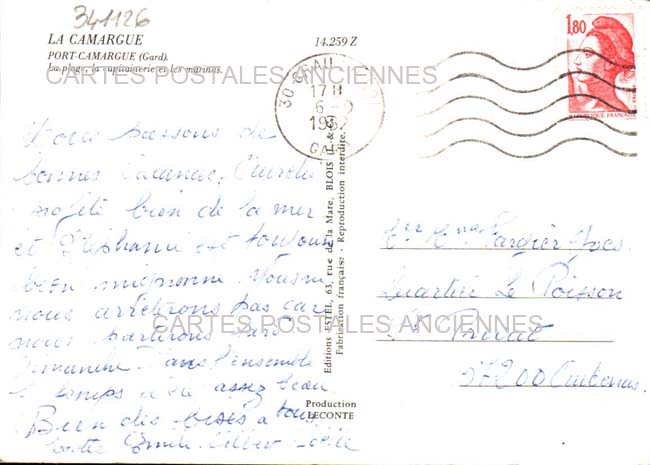 341126
LA CAMARGUE
PORT-CAMARGUE (Gard).
La plage, la capitainerie et les marinas.
14.259 Z
CARTES POSTALES ANCIENNES
30
17 H
6-9
1982
GARD
1,80
REPUBLIQUE FRANÇAISE
Nous passons de
bonnes vacances
profité bien de la mer
et Stéphanie est toujours
bien mignonne. Nous ne
nous arrêtrons pas car
nous partirons
Dimanche. Dans l'ensemble
le temps a été assez beau
Bien des bises à tous
Emile
Quartier Le Poisson
St Privat
07200 Aubenas
Editions ESTEL, 63, rue de la Mare, BLOIS (L.-&-C.)
Fabrication française - Reproduction interdite.
CARTES POSTALES ANCIENNES
Production
LECONTE